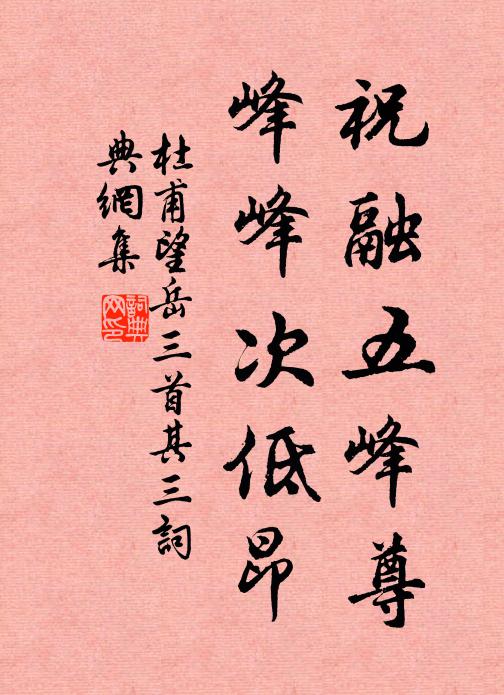 祝融五峰尊
峰峰次低昂
杜甫望岳三首其三詞
典網集
詞典網印